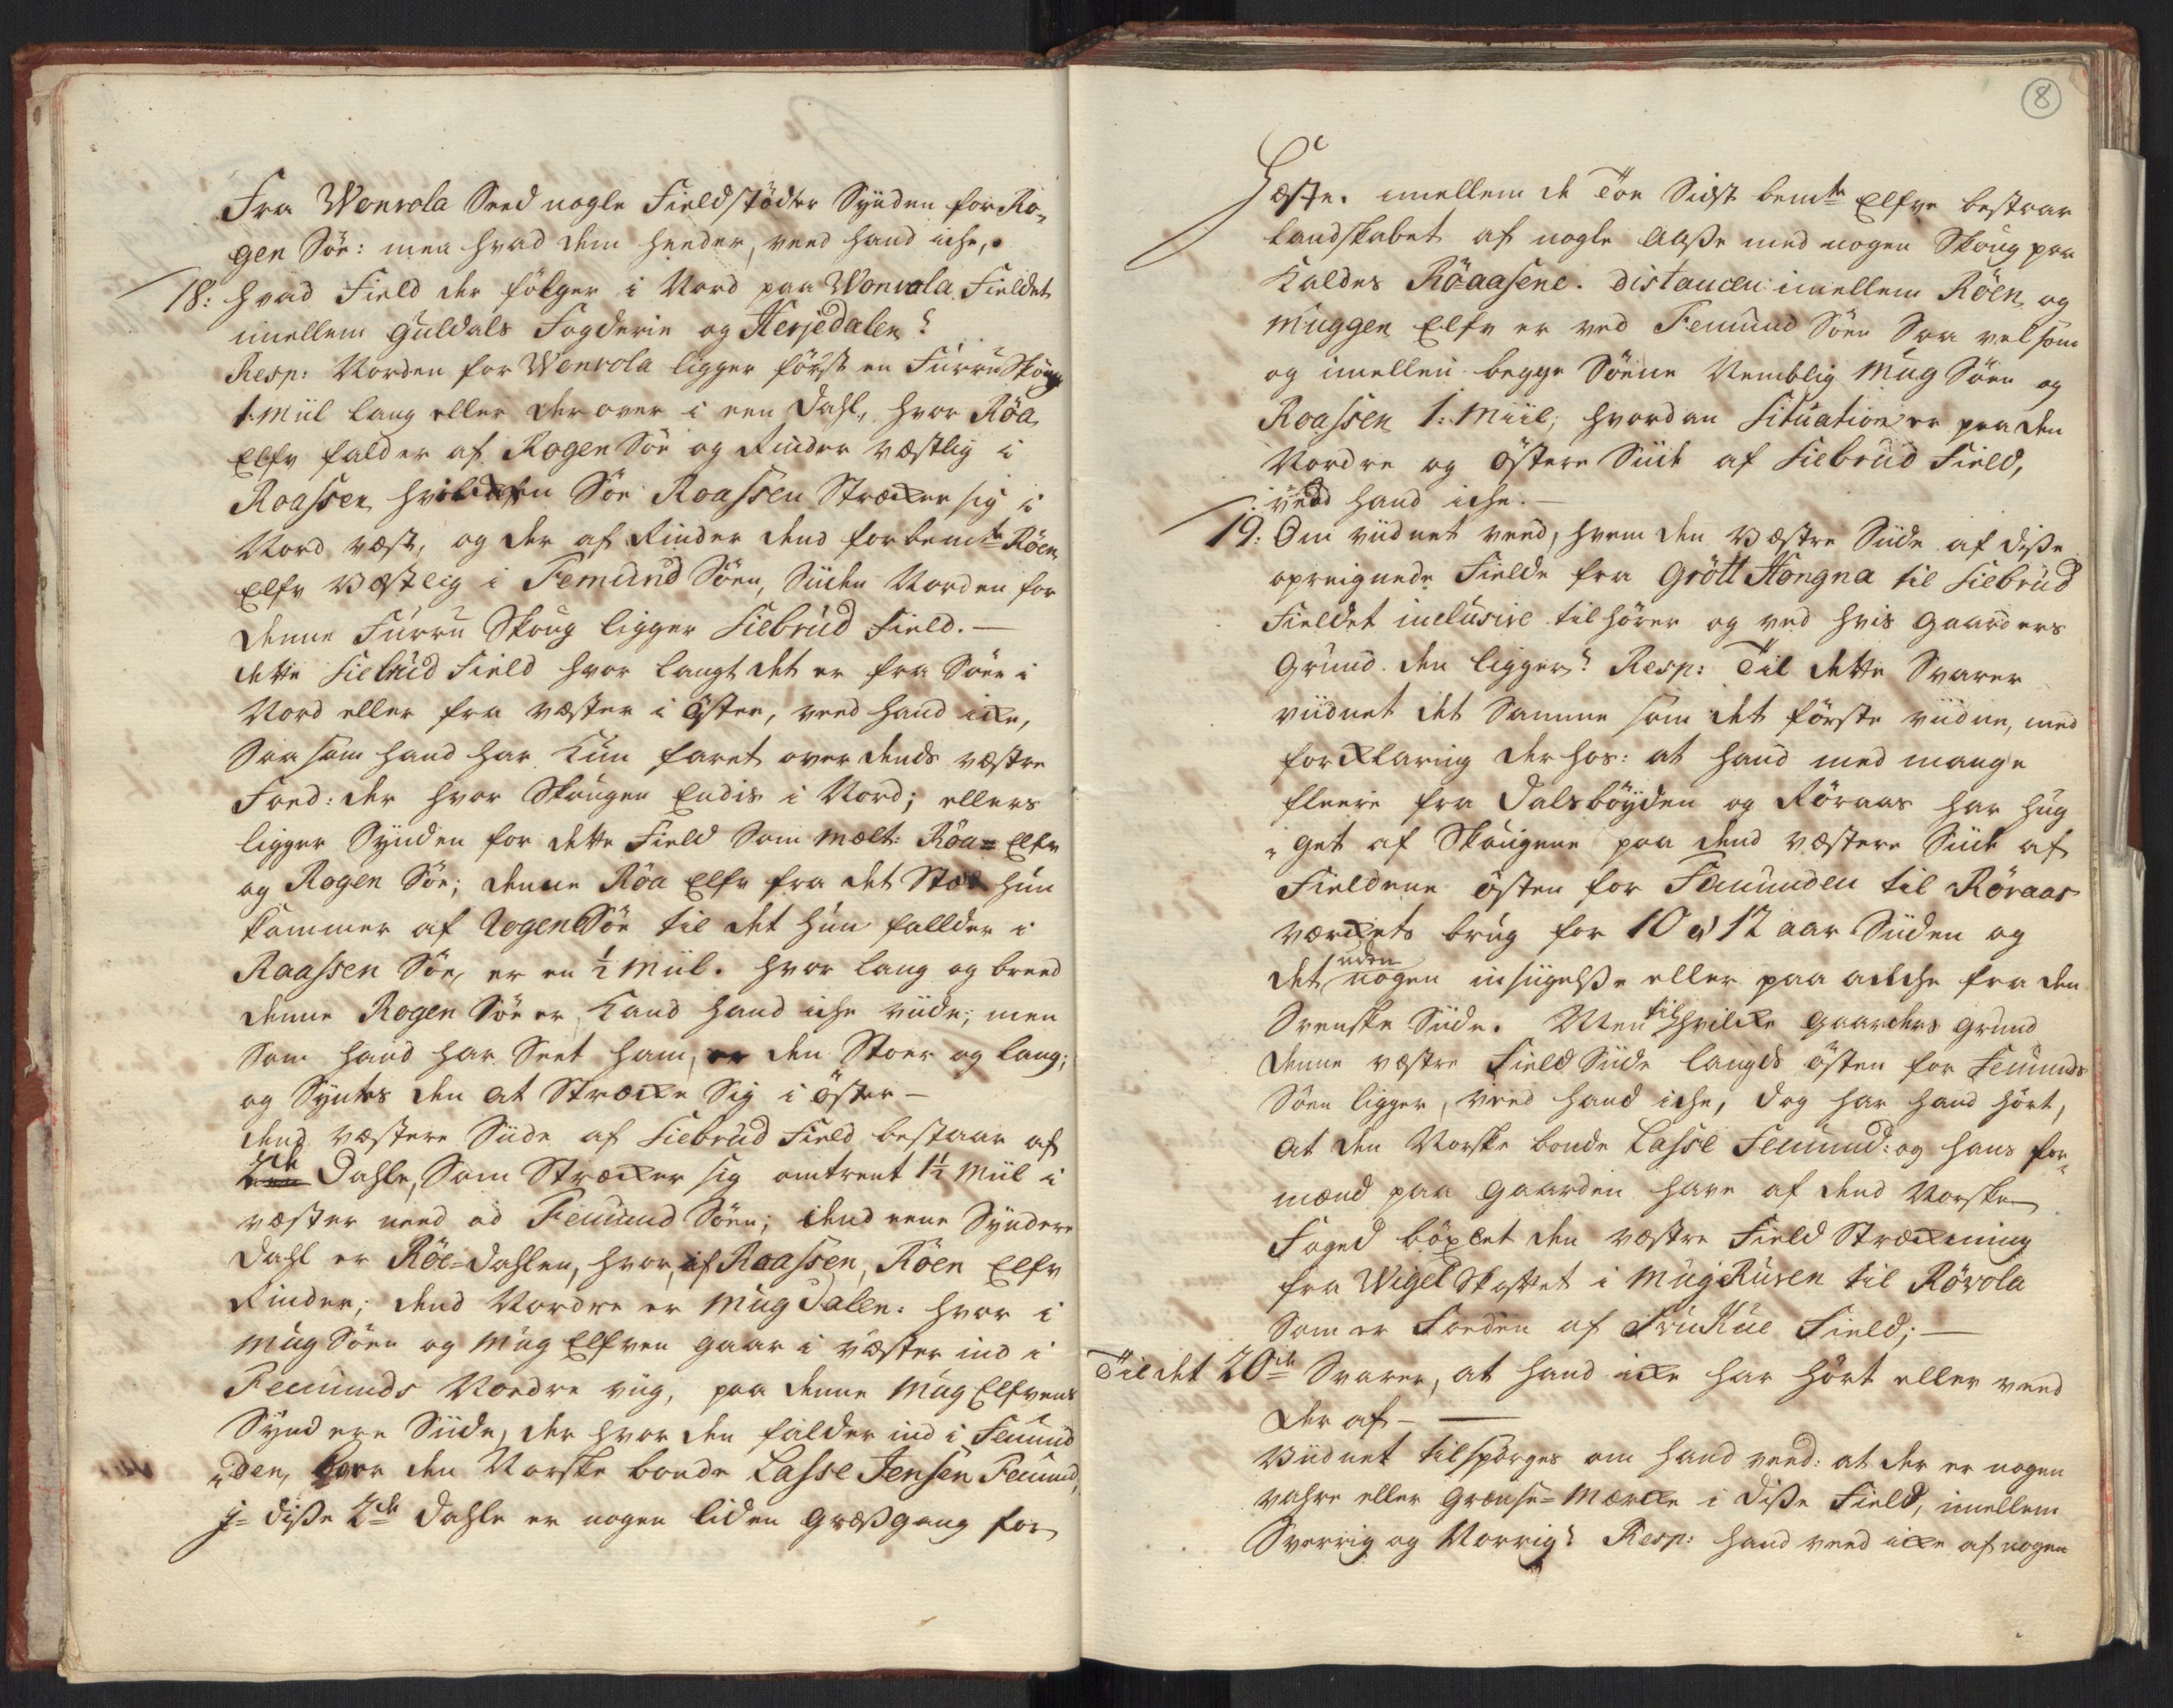 Fra Wonvola Seed nogle Fieldstöder Synden for Ro,,
gen Söe: men hvad dem heeder, veed hand iche,.
18: hvad Field der fölger i Nord paa Wonvola Fieldet
imellem Guldals Fogderie og Herjedalen?
Resp: Norden for Wonvola ligger först en Furru Skoug
1. Miil lang eller derover i een Dahl, hvor Röa
Elfv falder af Rogen Söe og Rinder væstlig i
Roassen, hvilcken Söe Roassen Strecker sig i
Nord væst, og der af Rinder dend forbemte Röen
Elfv Væstlig i Femund Söen, Siiden Norden for
denne Furru Skoug ligger Siebrud Field. —
dette Siebrud Field hvor langt det er fra Söer i
Nord eller fra væster i öster, veed hand icke,
Saa som hand har Kun faret over dends væstre
Foed: der hvor Skougen Endis i Nord; ellers
ligger Synden for dette Field Som melt: Röa= Elfv
og Rogen Söe; denne Röa Elfv fra det Stæd hun
kommer af Rogen Söe til det hun fallder i
Raassen Söe, er en ½ Miil. hvor lang og breed
denne Rogen Söe er Kand hand iche viide; men
Som hand har Seet ham, er den Stoer og lang;
og Syntes den at Strecke Sig i öster —
dend væstere Siide af Siebrud Field bestaar af
2de Dahle, Som Strecker sig omtrent 1½ Miil i
væster need ad Femund Söen; dend eene Syndere
Dahl er Röe=Dahlen, hvor, af Roassen, Röen Elfv
Rinder; dend Nordre er Mug Dalen: hvor i
Mug Söen og Mug Elfven gaar i væster ind i
Femunds Nordre viig, paa denne Mug Elfvens
Syndere Siide, der hvor den falder ind i Femund
,,den, boer den Norske bonde Lasse Jensen Femund,
J= disse 2de Dahle er nogen liden Græssgang for
8
Hæste. imellem de Toe Sidst bemte Elfve bestaar
Landskabet af nogle Aasse med nogen Skoug paa
Kaldes Röaasene. Distancen imellem Röen og
Muggen Elfv er ved Femund Söen Saa vel som
og imellem begge Söene Nemblig Mug Söen og
Roassen 1. Miil; hvordan Situation er paa den
Nordre og östere Siide af Siebrud Field,
veed hand iche. —
19: Om viidnet veed, hvem den Væstre Siide af disse
opreignede Fielde fra Grött Hongna til Siebrud
Fieldet inclusive tilhörer og ved hvis Gaarders
Grund den ligger? Resp: Til dette Svarer
viidnet det Samme som det förste viidne, med
forcklaring derhos: at hand med mange
fleere fra Dalsböyden og Röraas har hug
,,get af Skougene paa dend væstere Siide af
Fieldene östen for Femunden til Röraas
værckets brug for 10 a 12 aar Siiden og
det uden nogen insiigelse eller paa ancke fra den
Svenske Siide. Men til hvilcke Gaarders Grund
denne væstre Field Siide langds östen for Femunds
Söen ligger, veed hand iche, dog har hand hört,
at den Norske bonde Lasse Femund: og hans for,,
mænd paa Gaarden have af dend Norske
Foged böxlet den væstre Field Streckning
fra Wigel Skaftet i Mug Rusen til Rövola
Som er Foeden af Fruhue Field; —
Til det 20de Svarer, at hand icke har hört eller veed
der af —
Viidnet tilspörges om hand veed: at der er nogen
vahre eller Grænse=Mærcke i disse Field, imellem
Sverrig og Norrig? Resp: hand veed icke af nogen